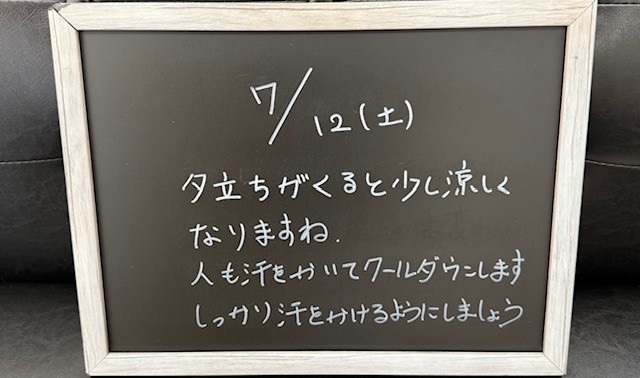 7/12(土)
夕立ちがくると少し涼しく
なりますね.
人も汗をかいてクールダウンします
しっかり汗をかけるようにしましょう